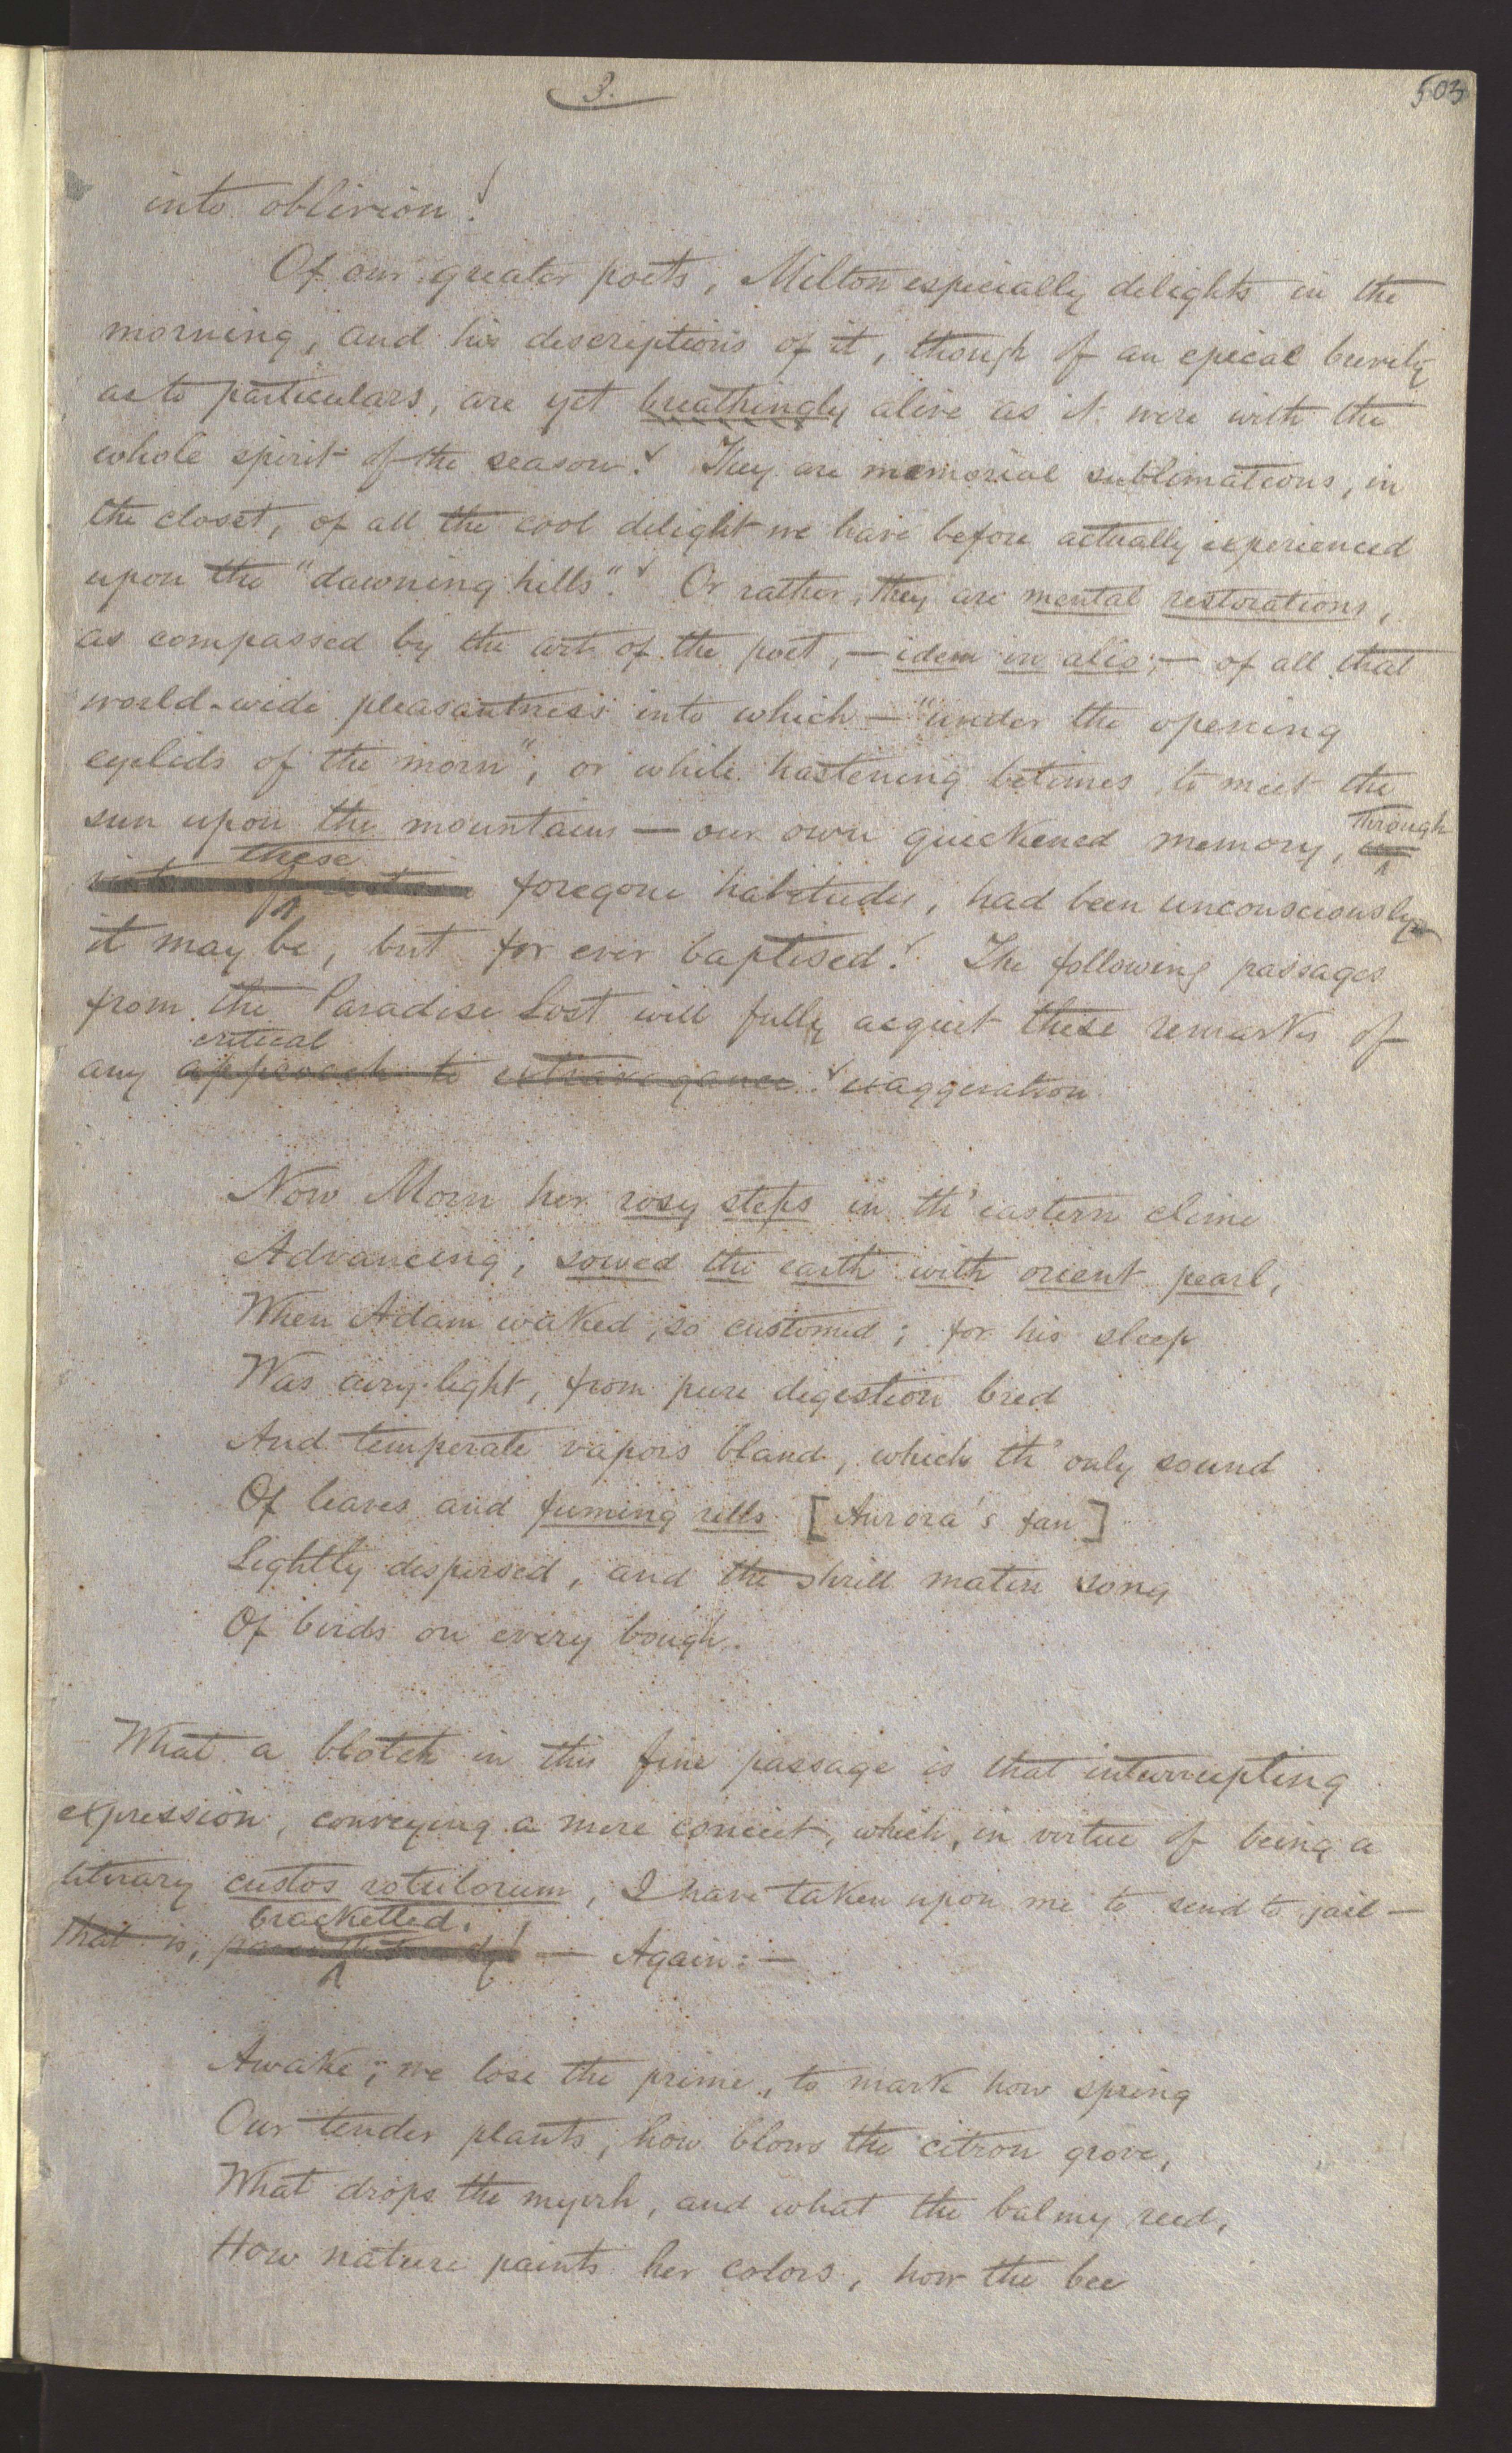 3.
503
into oblivion!
Of our greater poets, Milton especially delights in the
morning, and his descriptions of it, though of an epical brevity
as to particulars, are yet breathingly alive as it were with the
whole spirit of the season. They are memorial sublimations, in
the closet, of all the cool delight we have before actually experienced
upon the "dawning hills". Or rather, they are mental restorations,
as compassed by the art of the poet, — idem in alio; — of all that
world-wide pleasantness into which — "under the opening
eyelids of the morn", or while hastening betimes to meet the
sun upon the mountains — our own quickened memory,
through
these
foregone habitudes, had been unconsciously
it may be, but for ever baptised! The following passages
from the Paradise Lost will fully acquit these remarks of
critical
any approach to extravagance. exaggeration
Now Morn her rosy steps in th' eastern clime
Advancing, sowed the earth with orient pearl,
When Adam waked, so customed; for his sleep
Was airy light, from pure digestion bred
And temperate vapors bland, which th' only sound
Of leaves and fuming rills [Aurora's fan]
Lightly dispersed, and the shrill matin song
Of birds on every bough.
What a blotch in this fine passage is that interrupting
expression, conveying a mere conceit, which, in virtue of being a
literary custos rotulorum, I have taken upon me to send to jail —
bracketted.
that is, — Again: —
Awake; we lose the prime, to mark how spring
Our tender plants, how blows the citron grove,
What drops the myrrh, and what the balmy reed,
How nature paints her colors, how the bee